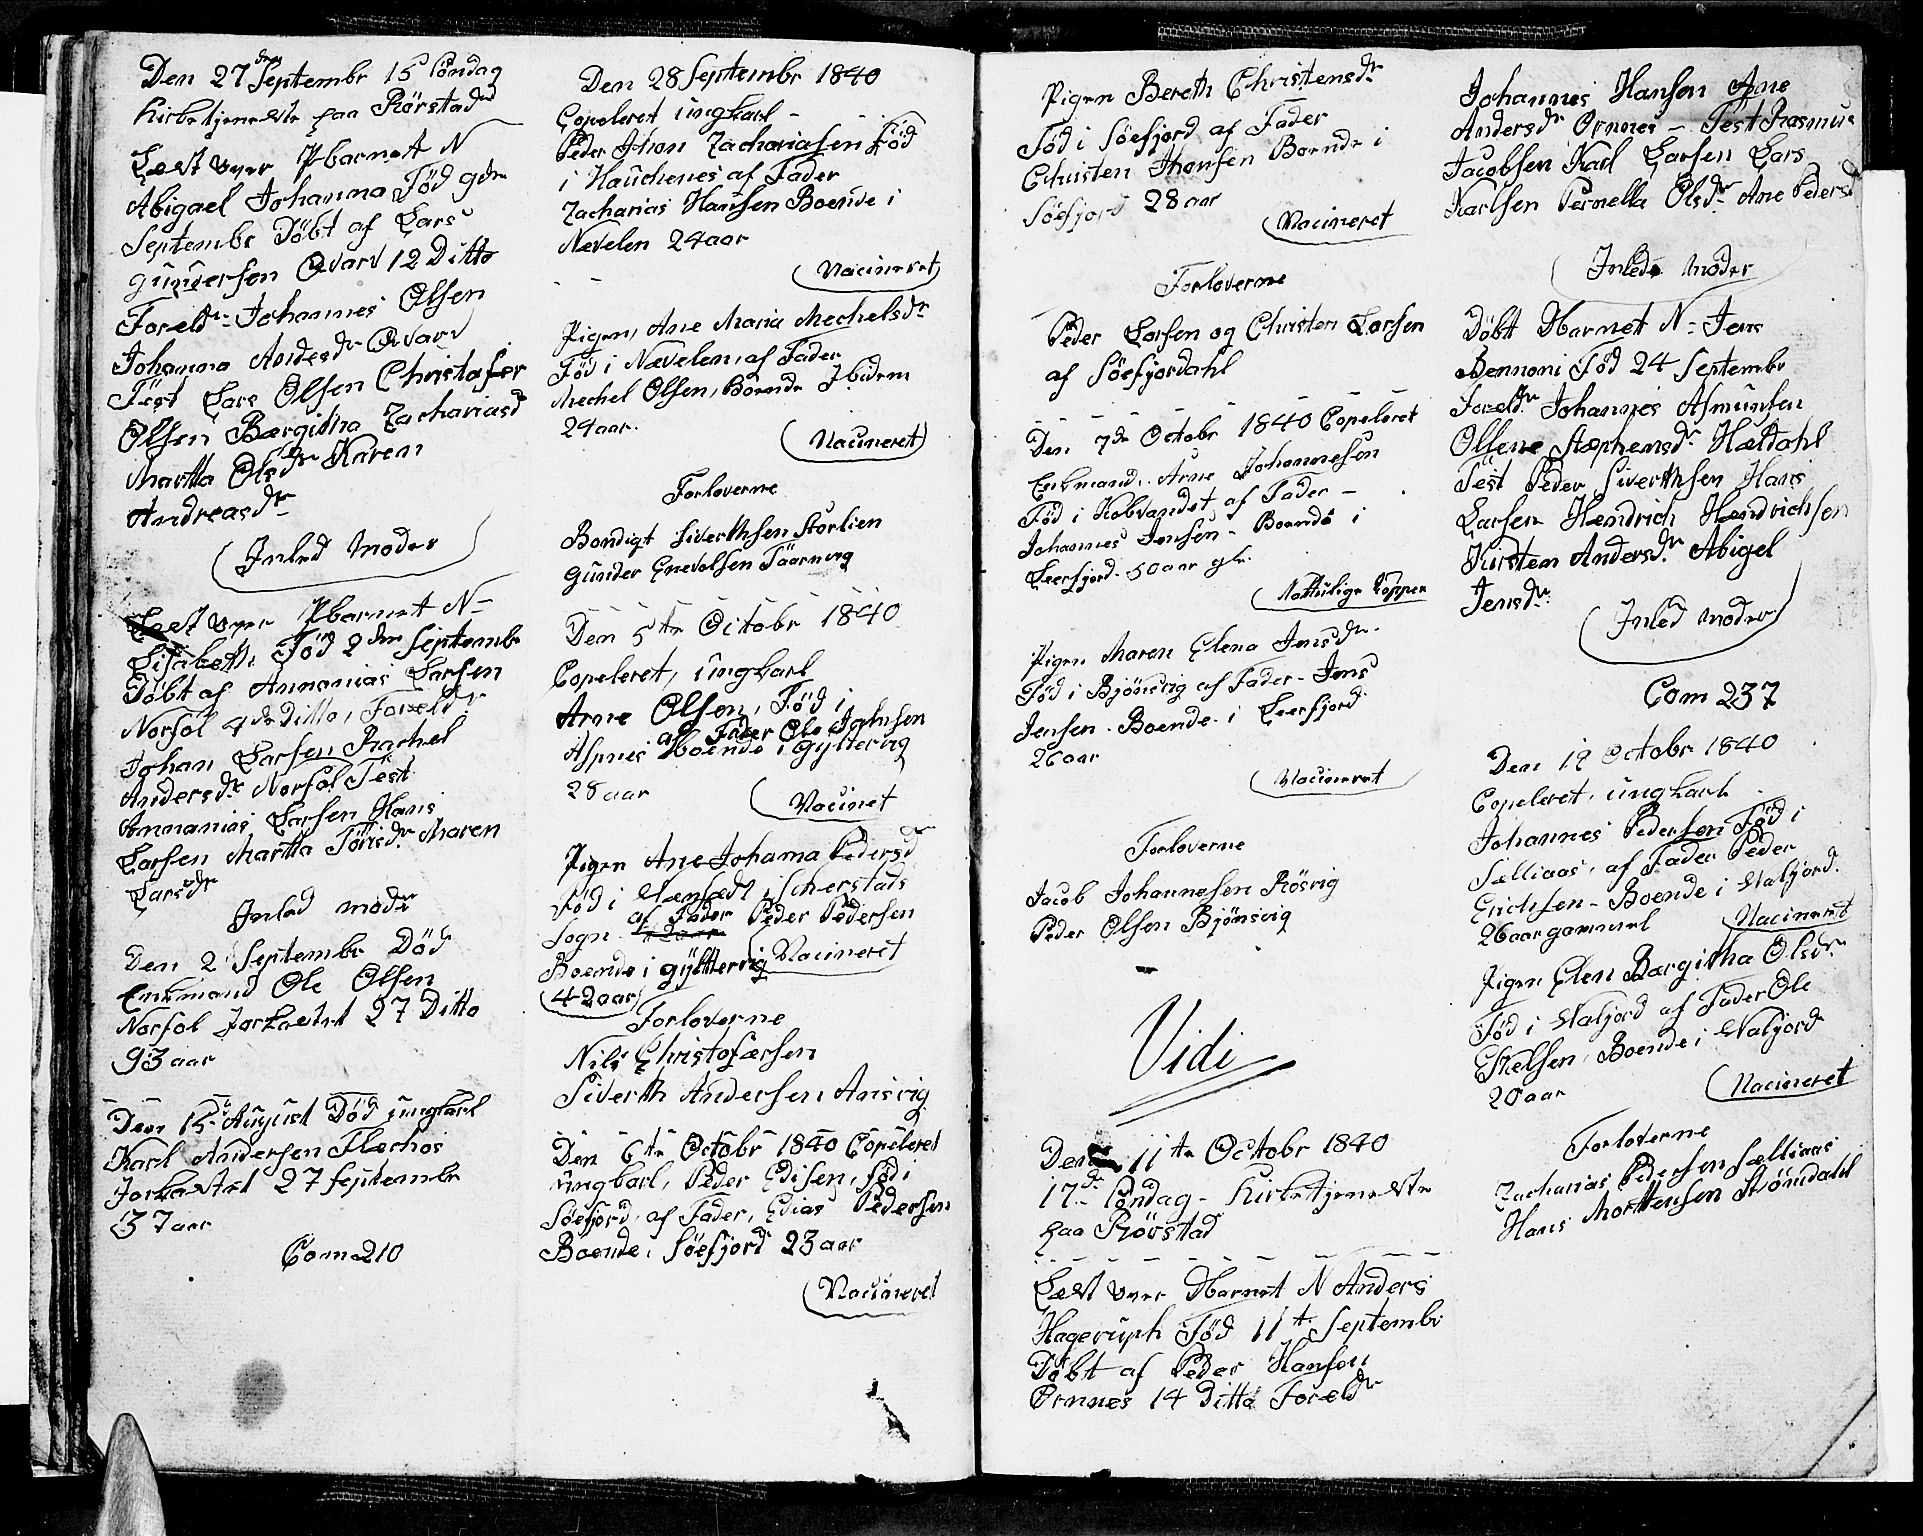 Den 27de Septembr 15 Söndag
kirketjeneste paa Rörstad
Læst over Pbarnet N
Abigael Johanna Fød 9de
Septembr Døbt af Lars
Gundersen Qvarv 12 Ditto
Foreldr Johannes Olsen
Johanna Andersdr Qvarv
Test Lars Olsen Christofer
Olsen Bærgitha Zachariasd
Martha Olsdr Karen
Andreasdr
Inled Moder
Læst over Pbarnet N
Lisabeth Fød 2den Septembr
Døbt af Annanias Larsen
Norfol 4de Ditto, Foreldr
Johan Larsen Rachel
Andersdr Norfol Test
Annanias Larsen Hans
Larsen Martha Törrisdr Maren
Larsdr
Inled modr
Den 2 Septembr Död
Enkmand Ole Olsen
Norfol Jorkastet 27 Ditto
93 aar
Den 15 August Död ungkarl
Karl Andersen Flechos
Jorkastet 27 Septembr
37 aar
Com 210
Den 28 Septembr 1840
Copeleret ungkarl
Peder Jhon Zachariasen Fød
i Hauchenes af Fader
Zacharias Hansen Boende i
Nevelen 24 aar
Vacineret
Pigen, Ane Maria Mechelsdr
Fød i Nævelen, af Fader
Mechel Olsen, Boende Ibidem
24 aar.
Vacineret
Forloverne
Bendigt Siverthsen Storlien
Gunder Enevolsen Täarnvig
Den 5te Octobr 1840
Copeleret, ungkarl
Arne Olsen, Fød i
af Fader Ole Johnsen
Aspnes Boende i Gyltevig
28 aar
Vacinet
Pigen Ane Johama Pedersd
Fød i Scherstads
Sogn af Fader Peder Pedersen
Boende i gyltervig Vacineret
42 aar
Forloverne
Nils Christofersen
Siverth Andersen Ansvig
Den 6te Octobr 1840 Copeleret
ungkarl, Peder Edisen, Föd i
Söefjord af Fader, Edias Pedersen
Boende, Söefjord 23 aar
Vacineret
Pigen Bereth Christensdr
Fød i Söefjord af Fader
Christen Thonsen Boende i
Söefjord 28 aar
Vacineret
Forloverne
Peder Larsen og Christen Larsen
af Söefjordahl
Den 7de Octobr 1840 Copeleret
Enkmand. Arne Johannesen
Fød i Kobvandet af Fader
Johannes Jensen - Boende i
Leerfjord. 50 aar gl.
Nattulige Kopper
Pigen Maren Elena Jensdr
Fød i Bjönsvig af Fader - Jens
Jensen - Boende i Leerfjord
26 aar
Vacineret
Forloverne
Jacob Johannesen Rösvig
Peder Olsen Bjönsvig
Vidi
Den 11te Octobr 1840
17de Söndag - kirketjeneste
paa Rörstad
Læst over Dbarnet N Anders
Hageruph Fød 11te Septembr
Døbt af Peder Hansen
Ornnes 14 Ditto Foreldr
Johannes Hansen Ane
Andersdr Ornnes - Test Rasmus
Jacobsen Karl Larsen Lars
Karlsen Pernella Olsdr Ane Pedersd
Inlede Moder
Døbt Dbarnet N Jens
Bennoni Fød 24 Septembr
Foreldr Johannes Asmunsen
Ollene Stephensdr Hældahl
Test Peder Siverthsen Hans
Larsen Hendrich Hendrichsen
Kirsten Andersdr Abigel
Jensdr
Inled moder
Com 237
Den 12 Octobr 1840
Copeleret, ungkarl
Johannes Pedersen Fød i
Sælliaas, af Fader Peder
Erichsen - Boende i Valjord.
26 aar gammel Vacineret
Pigen Elen Bærgitha Olsdr
Fød i Valjord af Fader Ole
Ekelsen, Boende i Valjord
20 aar
Vacineret
Forloverne
Zacharias Pedersen Sælliaas
Hans Morttensen Strömdahl